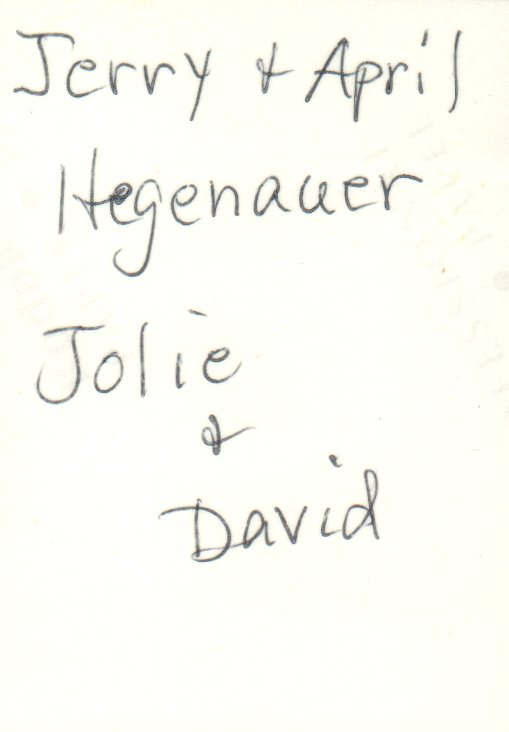 Jerry & April
Hegenauer
Jolie
&
David